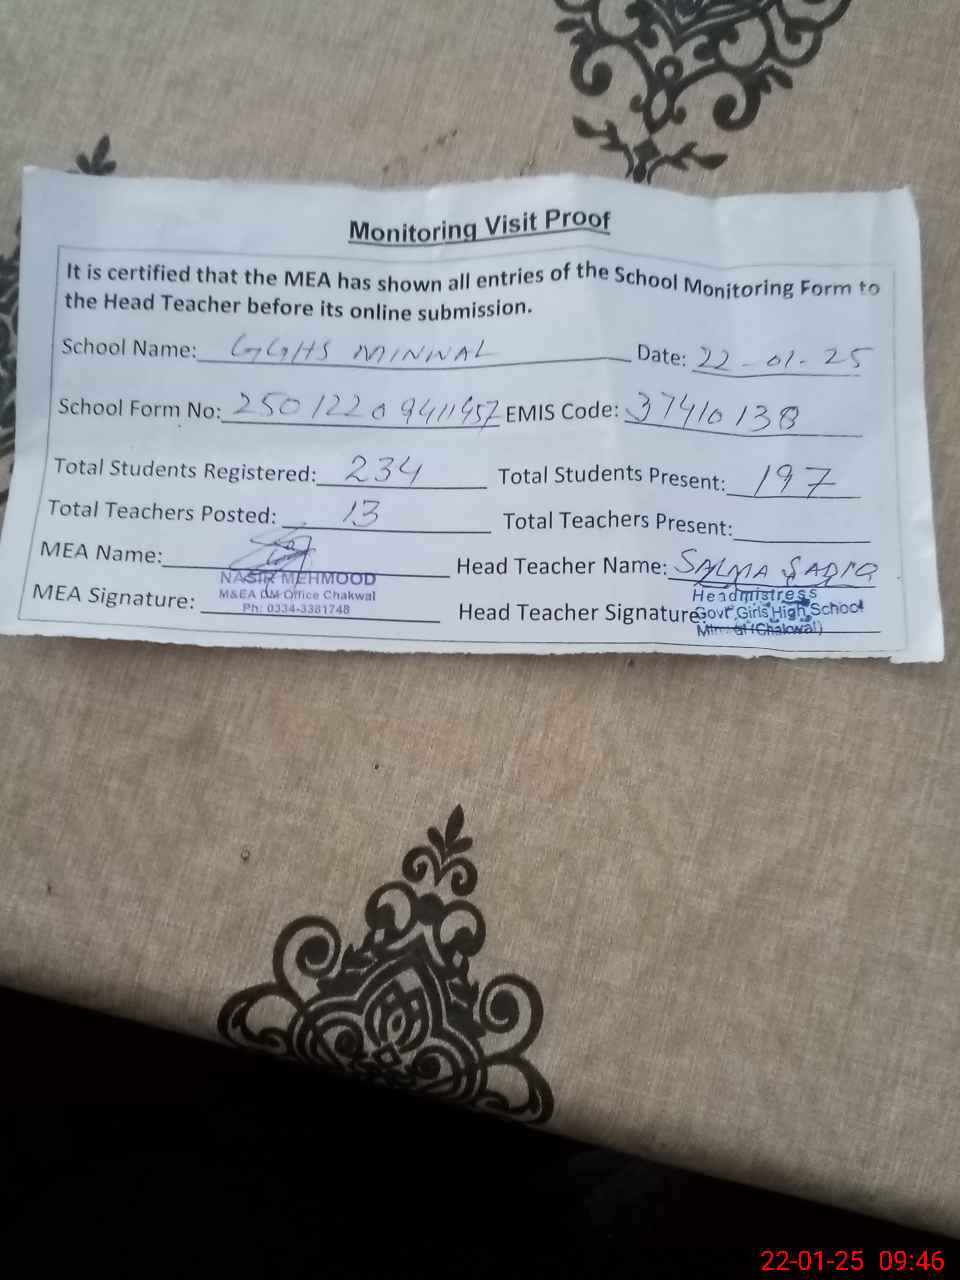 Monitoring Visit Proof
It is certified that the MEA has shown all entries of the School Monitoring Form to
the Head Teacher before its online submission.
School Name: GGHS MINWAL Date: 22-01-25
School Form No: 25012209411457 EMIS Code: 37410138
Total Students Registered: 234 Total Students Present: 197
Total Teachers Posted: 13 Total Teachers Present:
MEA Name: Head Teacher Name: SALMA SADIQ
NASIR MEHMOOD
M&EA DM Office Chakwal
Ph: 0334-3381748
MEA Signature: Head Teacher Signature
Headmistress
Govt Girls High School
(Chakwal)
22-01-25 09:46